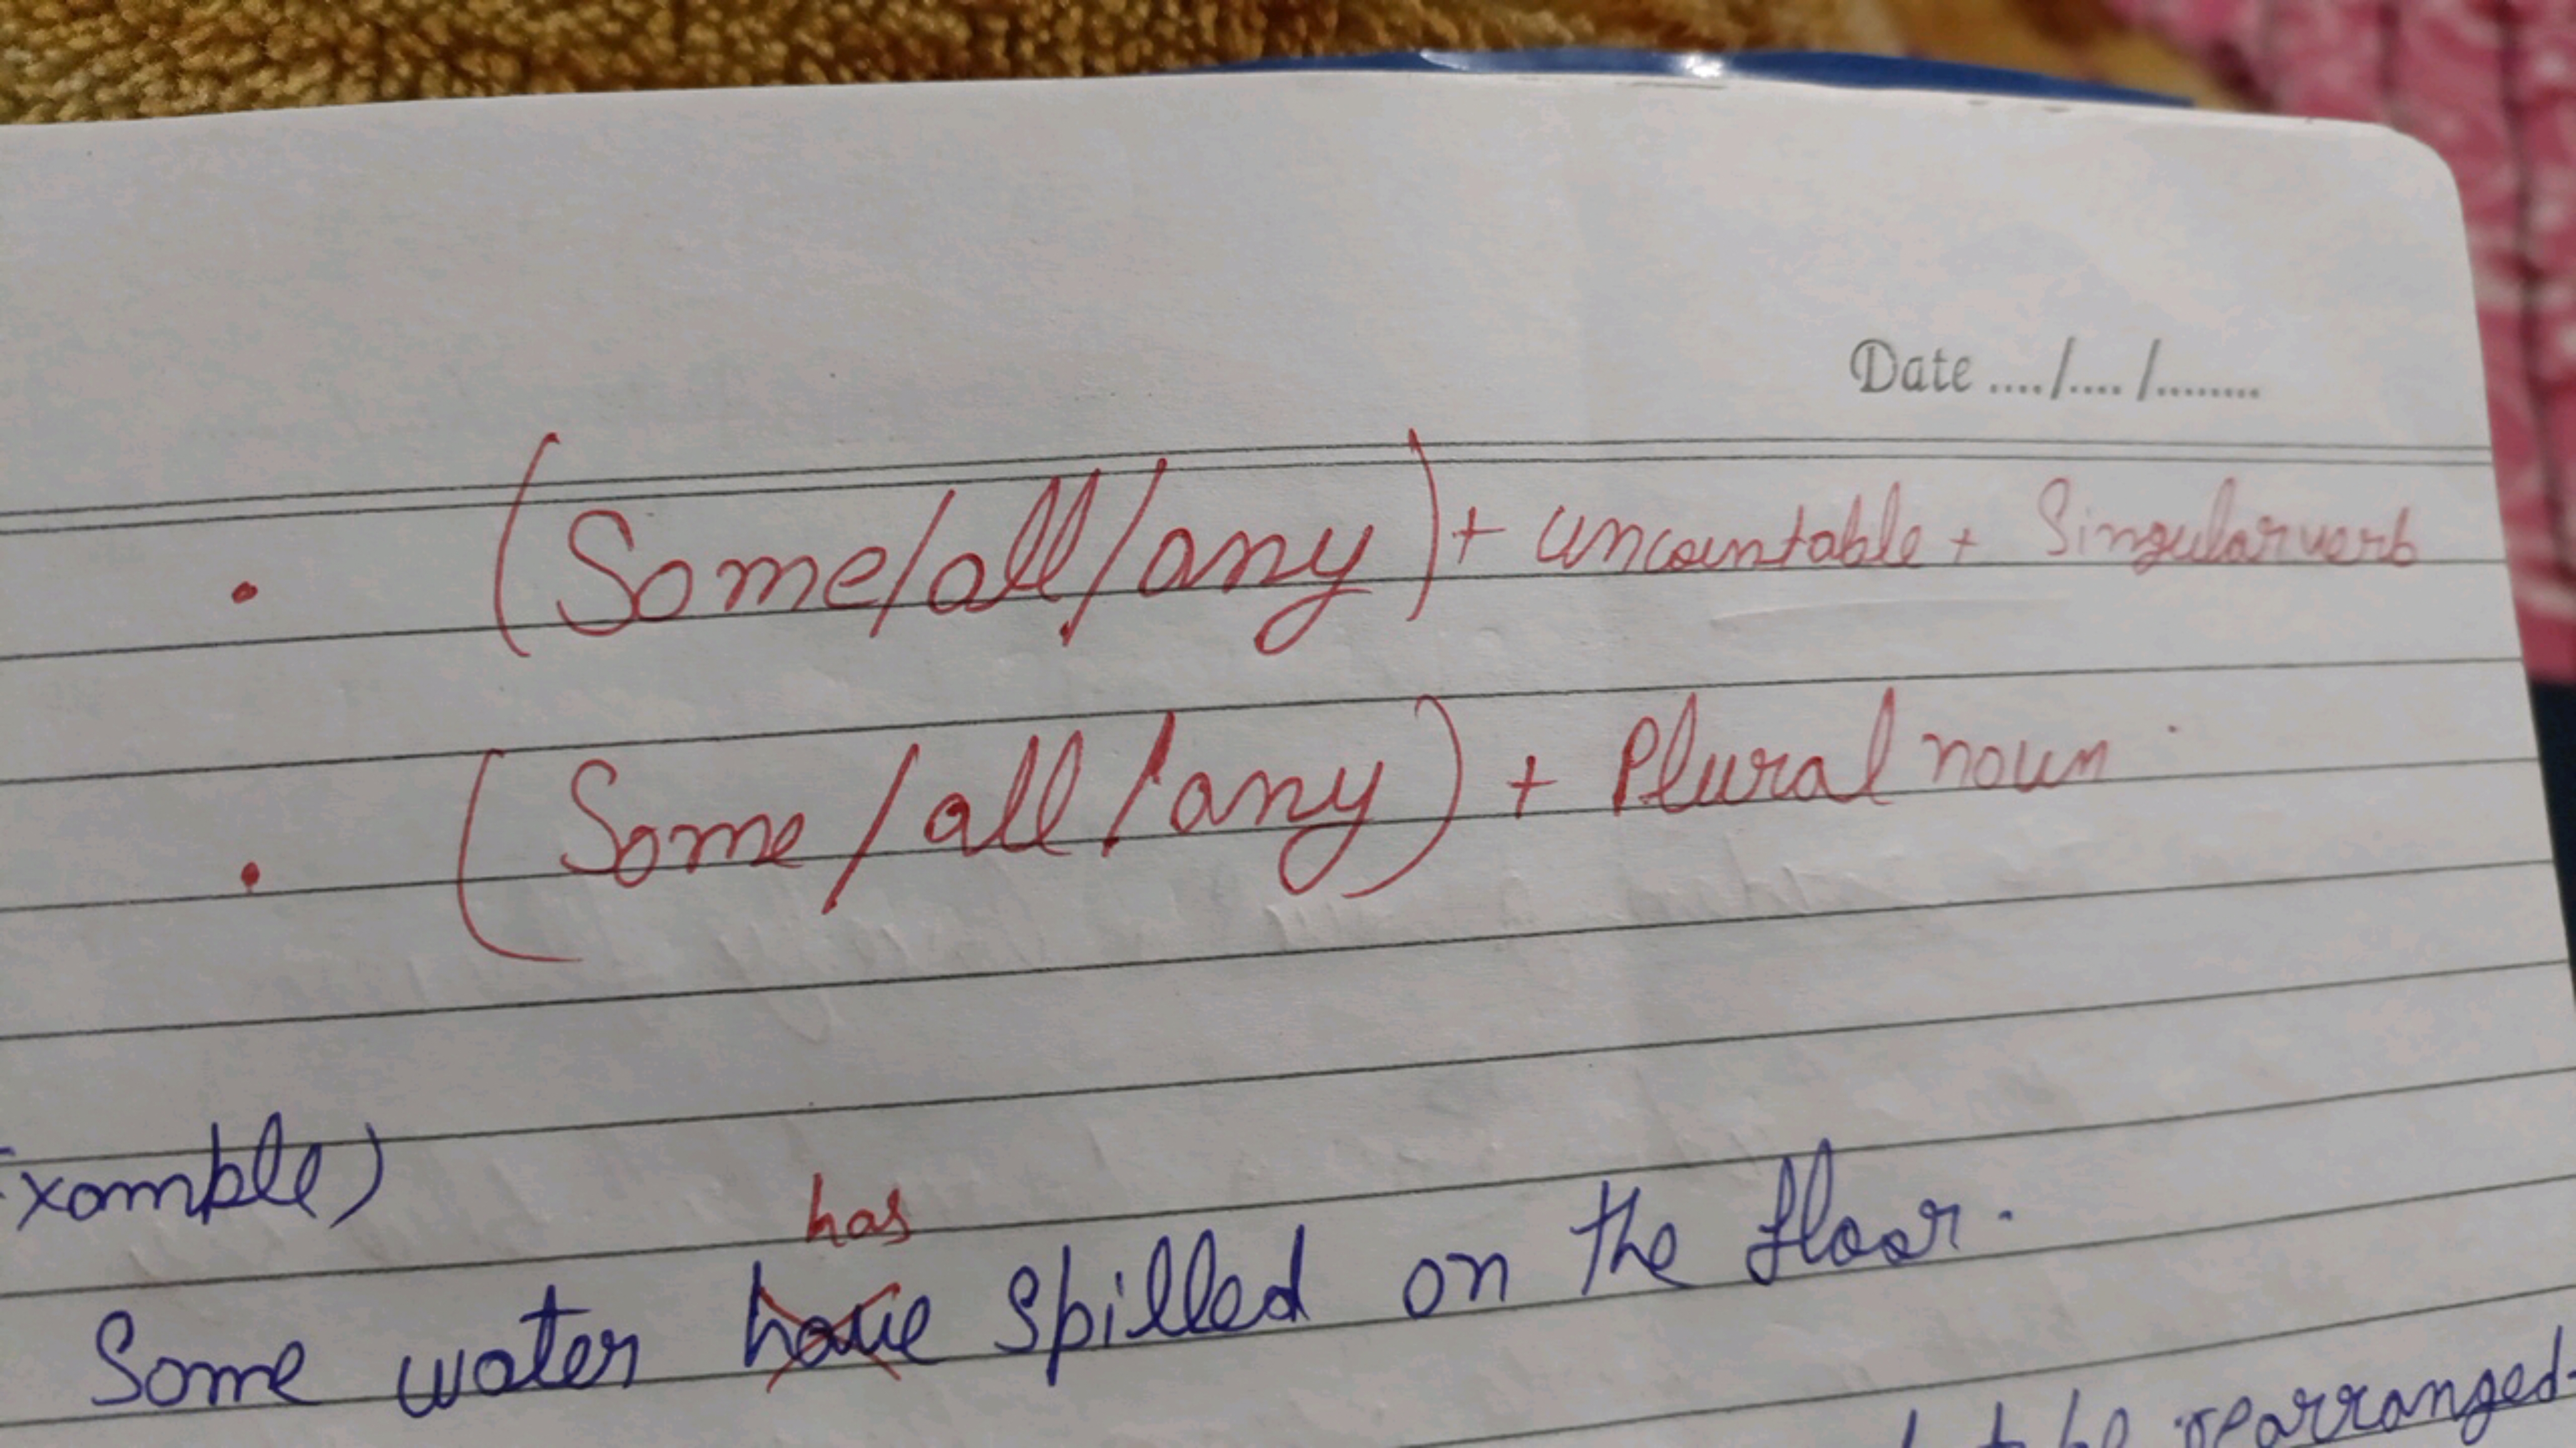 Date ..../..../........
• (Some/all/any) + uncountable + Singular verb
• (Some/all/any) + Plural noun
xample)
has
Some water have spilled on the floor.
to be rearranged